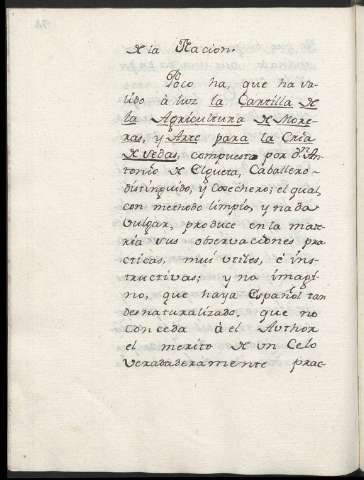 de la Nacion.
Poco ha, que ha sa-
lido à luz la Cartilla de
la Agricultura de More-
ras, y Arte para la Cria
de Sedas, compuesta por dⁿ An-
tonio de Elgueta, Caballero
distinguido, y Cosechero; el qual,
con methodo limpio, y nada
vulgar, produce en la mate-
ria sus observaciones pra-
cticas, mui utiles, è ins-
tructivas; y no imagi-
no, que haya Español tan
desnaturalizado, que no
conceda à el Author
el merito de un Celo
veradaderamente prac-